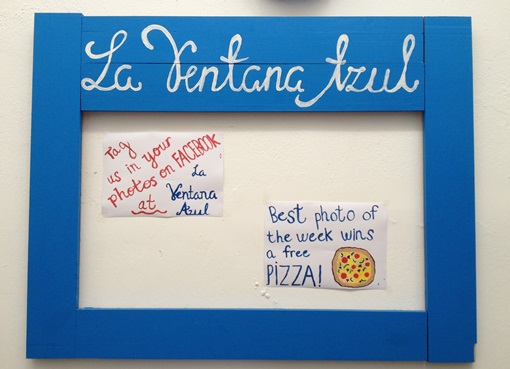 La Ventana Azul
Tag
us in your
photos on FACEBOOK
at
La
Ventana
Azul
Best photo of
the week wins
a free
PIZZA!